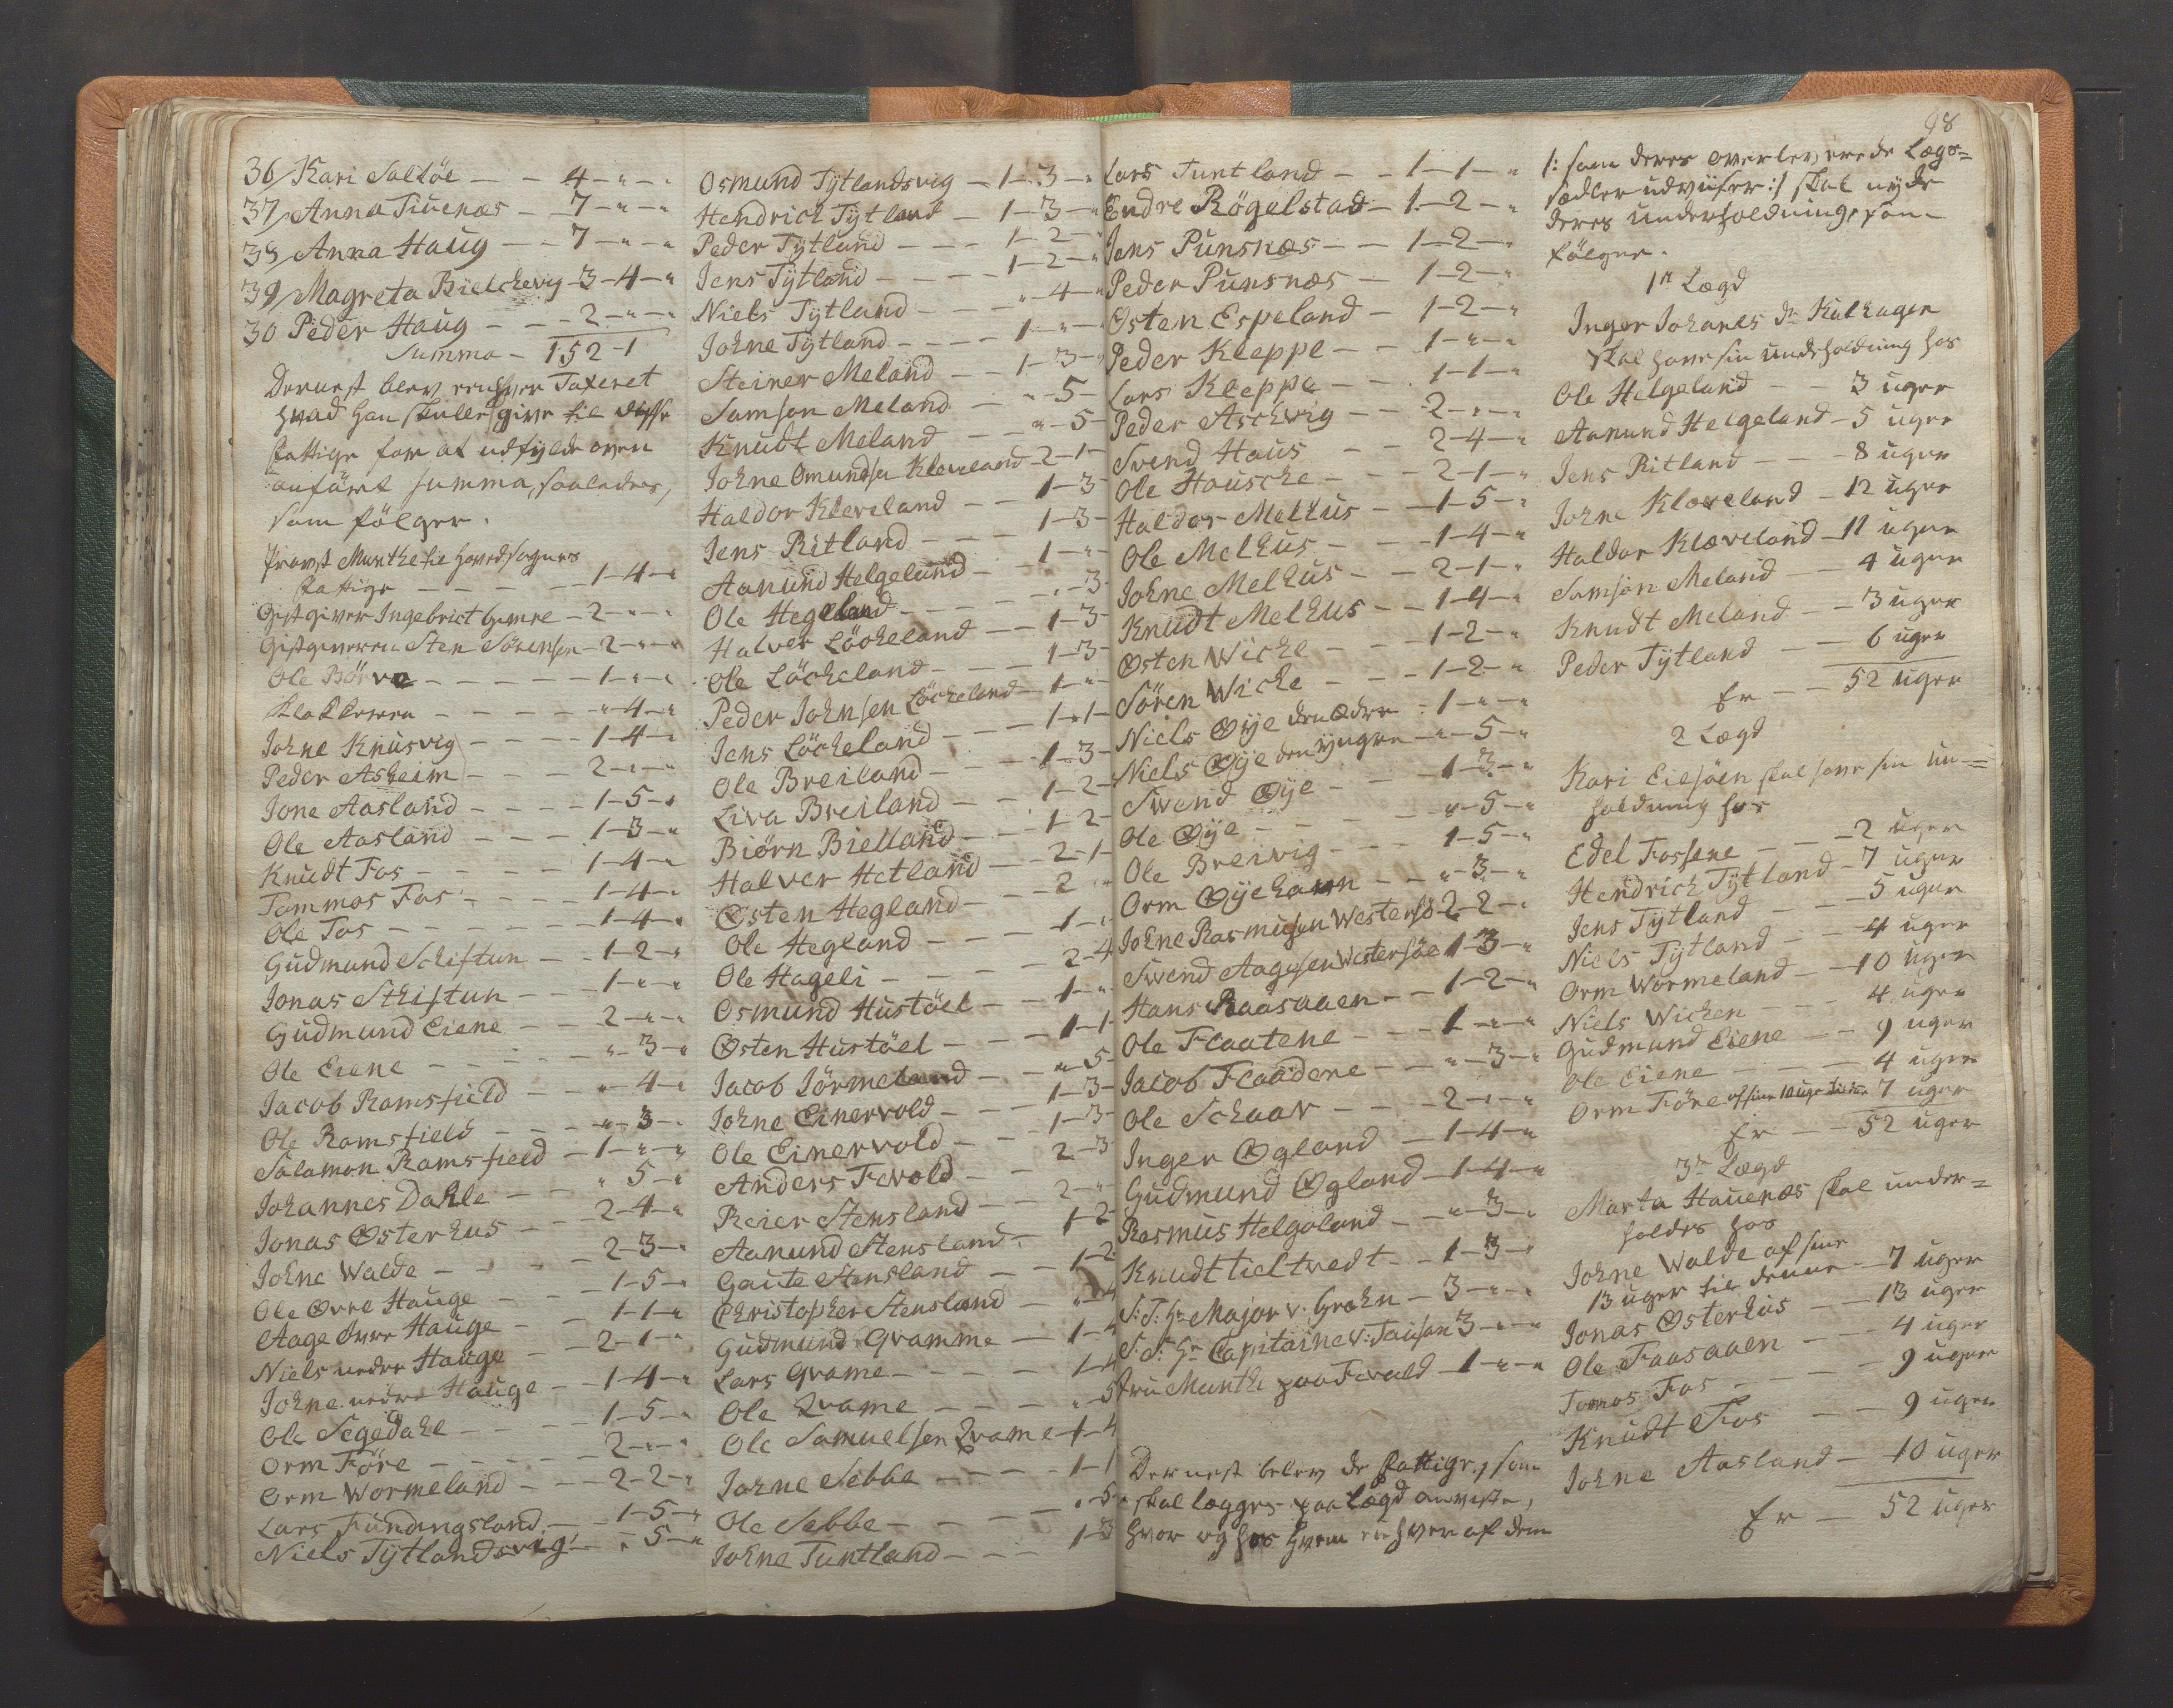 36/ Kari Saltöe - - 4 - " - "
37/ Anna Tiuenæs - 7 - " - "
38/ Anna Haug - - 7 - " - "
39/ Magreta Bielchevig - 3 - 4 - "
30 Peder Haug - - - 2 - " - "
Summa - 152 - 1
Dernest blev enhver Taxeret
hvad han skulle give til disse
fattige for at udfylde oven
anført summa, saaledes,
som følger.
Provst Munthe til Hovedsognets
fattige - - - - 1 - 4 - "
Gistgiver Ingebrict Gemre - 2 - " - "
Gistgiveren Sten Sörensen - 2 - " - "
Ole Börve - - - - 1 - " - "
Klokkeren - - - - " - 4 - "
Johne Knusvig - - - 1 - 4 - "
Peder Asheim - - - 2 - " - "
Jone Aasland - - - 1 - 5 - "
Ole Aasland - - - 1 - 3 - "
Knudt Fos - - - - 1 - 4 - "
Tommos Fos - - - 1 - 4 - "
Ole Fos - - - - - 1 - 4 - "
Gudmund Schiftun - - 1 - 2 - "
Jonas Schiftun - - 1 - " - "
Gudmund Eiene - - 2 - " - "
Ole Eiene - - - " - 3 - "
Jacob Ramsfield - - " - 4 - "
Ole Ramsfield - - - " - 3 - "
Salamon Ramsfield - 1 - " - "
Johannes Dahle - - " 5 - "
Jonas Østerhus - - 2 - 4 - "
Johne Walde - - - 2 - 3 - "
Ole Øvre Hauge - - 1 - 5 - "
Aage Øvre Hauge - - 1 - 1 - "
Niels nedre Hauge - 2 - 1 - "
Johne nedre Hauge - 1 - 4 - "
Ole Segedahl - - - 1 - 5 - "
Orm Före - - - - 2 - " - "
Orm Wormeland - - 2 - 2 - "
Lars Fundingsland - 1 - 5 - "
Niels Tÿtlandsvig - " 5 - "
Osmund Tÿtlandsvig - 1 - 3 - "
Hendrich Tÿtland - 1 - 3 - "
Peder Tÿtland - - - 1 - 2 - "
Jens Tÿtland - - - 1 - 2 - "
Niels Tÿtland - - - " - 4 - "
Johne Tÿtland - - - 1 - " - "
Steiner Meland - - 1 - 3 - "
Samson Meland - - " - 5 -
Knudt Meland - - " - 5 -
Johne Omundsen Kleveland - 2 - 1 -
Haldor Kleveland - - 1 - 3 -
Jens Ritland - - - 1 - 3 -
Aanund Helgeland - - 1 - " -
Ole Hegeland - - - " - 3 -
Halver Löcheland - - 1 - 3 -
Ole Löcheland - - - 1 - 3 -
Peder Johnsen Löcheland - 1 - " -
Jens Löcheland - - - 1 - 1 -
Ole Breiland - - - 1 - 3 -
Liva Breiland - - 1 - 2 -
Biörn Bielland - - 1 - 2 -
Halver Hetland - - 2 - 1 -
Østen Hegland - - - 2 "
Ole Hegland - - - 1 - "
Ole Hageli - - - - 2 - 4
Osmund Hustöel - - 1 - "
Østen Hustöel - - - 1 - 1
Jacob Jörmeland - - " 5 -
Johne Einervold - - 1 - 3 -
Ole Einervold - - 1 - 3 -
Anders Fevold - - 2 - 3
Reier Stensland - - 2 - "
Aanund Stensland - 1 - 2
Gaute Stensland - - 1 - 2
Christopher Stensland - " - 4
Gudmund Qvamme - 1 - 4
Lars Qvame - - - - 1 - 4
Ole Qvame - - - - " - 5
Ole Samuelsen Qvame - 1 - 4
Johne Sebbe - - - - 1 - 1
Ole Sebbe - - - - " - 5
Johne Tuntland - - - 1 - 3
Lars Tuntland - - 1 - 1 - "
Endre Rögelstad - 1 - 2 - "
Jens Punsnæs - - 1 - 2 - "
Peder Punsnæs - 1 - 2 - "
Østen Espeland - 1 - 2 - "
Peder Kleppe - - 1 - " - "
Lars Kleppe - - - 1 - 1 - "
Peder Aschvig - - 2 - " - "
Svend Haus - - 2 - 4 - "
Ole Hausche - - - 2 - 1 - "
Haldor Melhus - - 1 - 5 - "
Ole Melhus - - - 1 - 4 - "
Johne Melhus - - 2 - 1 - "
Knudt Melhus - - 1 - 4 - "
Østen Wiche - - - 1 - 2 - "
Sören Wiche - - - 1 - 2 - "
Niels Øÿe den Ældre - 1 - " - "
Niels Øÿe den yngre - " - 5 - "
Swend Øÿe - - 1 - 3 - "
Ole Øÿe - - - - " - 5 - "
Ole Breivig - - - 1 - 5 - "
Orm Øÿehavn - - " - 3 - "
Johne Rasmusen Westersö 2 - 2 - "
Swend Aagesen Westersöe 1 - 3 - "
Hans Raasaaen - - 1 - 2 - "
Ole Flaatene - - - 1 - " - "
Jacob Flaadene - - " - 3 - "
Ole Schaar - - - 2 - " - "
Inger Øgland - 1 - 4 - "
Gudmund Øgland - 1 - 4 - "
Rasmus Helgaland - " - 3 - "
Knudt tieltvedt - - 1 - 3 - "
S: T: Hr Major v. Grahn - 3 - " - "
S: T: Hr Capitaine v: Tausan 3 - " - "
Fru Munthe paa Fevald - 1 - " - "
Dernest blev de fattige, som
skal lægges paa Lægd anviiste,
hvor og hos hvem enhver af dem
98
/: som deres overleverede Lægs=
sedler udviiser :/ skal nyde
deres underholdning, som
følger.
1te Lægd
Inger Johanes Dr Kulhagen
skal have sin underholdning hos
Ole Helgeland - - 3 uger
Aanund Helgeland - 5 uger
Jens Ritland - - - 8 uger
Johne Klæveland - 12 uger
Haldor Klæveland - 11 uger
Samson Meland - - 4 uger
Knudt Meland - - 3 uger
Peder Tÿtland - - 6 uger
Er - - 52 uger
2 Lægd
Kari Eiesöen skal have sin un=
holdning hos
Edel Fossene - - - 2 uger
Hendrich Tÿtland - 7 uger
Jens Tÿtland - - - 5 uger
Niels Tÿtland - - 4 uger
Orm Wormeland - - 10 uger
Niels Wichen - - - 4 uger
Gudmund Eiene - - 9 uger
Ole Eiene - - - - 4 uger
Orm Före af sine 10 uger 7 uger
Er - - 52 uger
3de Lægd
Marta Hauenæs skal under=
holdes hos
Johne Walde af sine
13 uger til denne - 7 uger
Jonas Østerhus - - 13 uger
Ole Faasaaen - - - 4 uger
Tomos Fos - - - - 9 uger
Knudt Fos - - 9 uger
Johne Aasland - 10 uger
Er - 52 uger